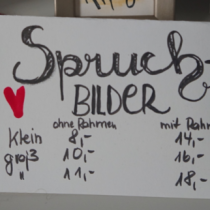 Spruch-
BILDER
ohne Rahmen mit Rah
Klein 8,- 14,-
groß 10,- 16,-
" 11,- 18,-